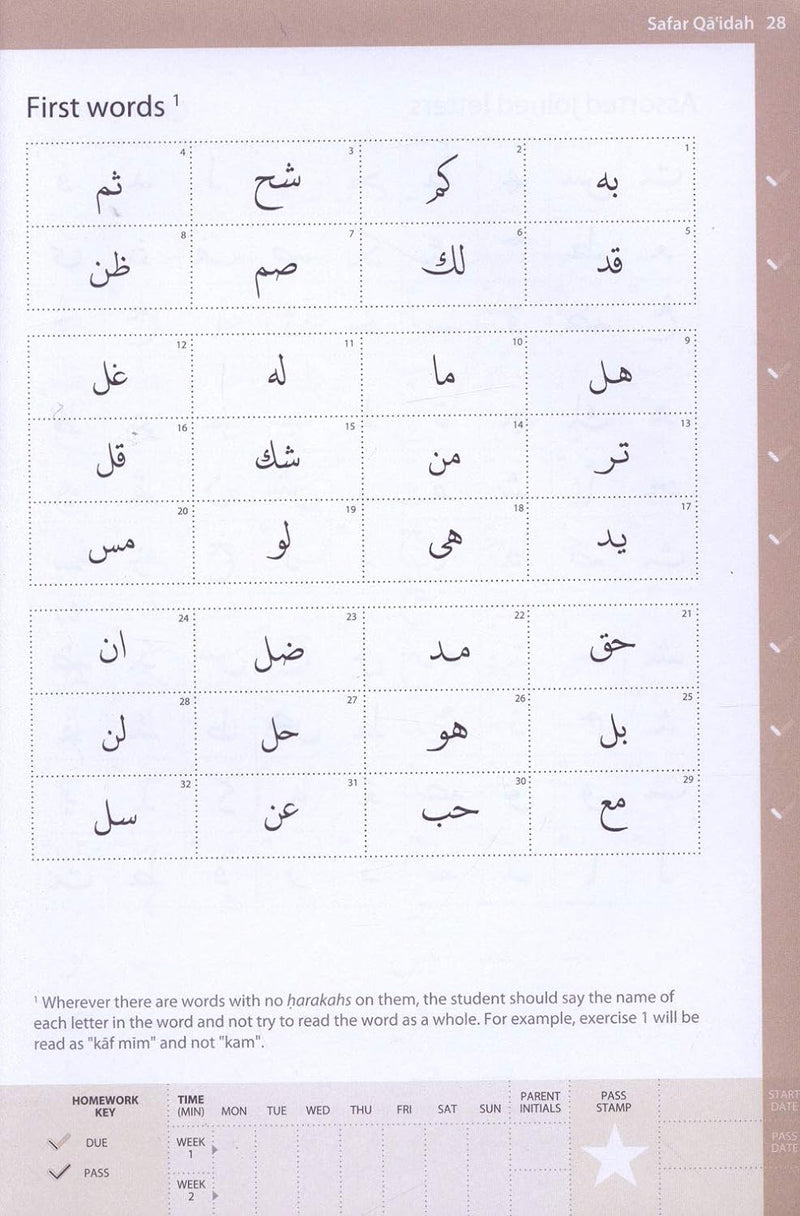 Safar Qā'idah 28
First words ¹
1 2 3 4
به كم شح ثم
5 6 7 8
قد لك صم ظن
9 10 11 12
هل ما له غل
13 14 15 16
تر من شك قل
17 18 19 20
يد هى لو مس
21 22 23 24
حق مد ضل ان
25 26 27 28
بل هو حل لن
29 30 31 32
مع حب عن سل
¹ Wherever there are words with no ḥarakahs on them, the student should say the name of
each letter in the word and not try to read the word as a whole. For example, exercise 1 will be
read as "kāf mīm" and not "kam".
HOMEWORK
KEY
DUE
PASS
TIME
(MIN) MON TUE WED THU FRI SAT SUN
PARENT
INITIALS
PASS
STAMP
WEEK
1
WEEK
2
START
DATE
PASS
DATE